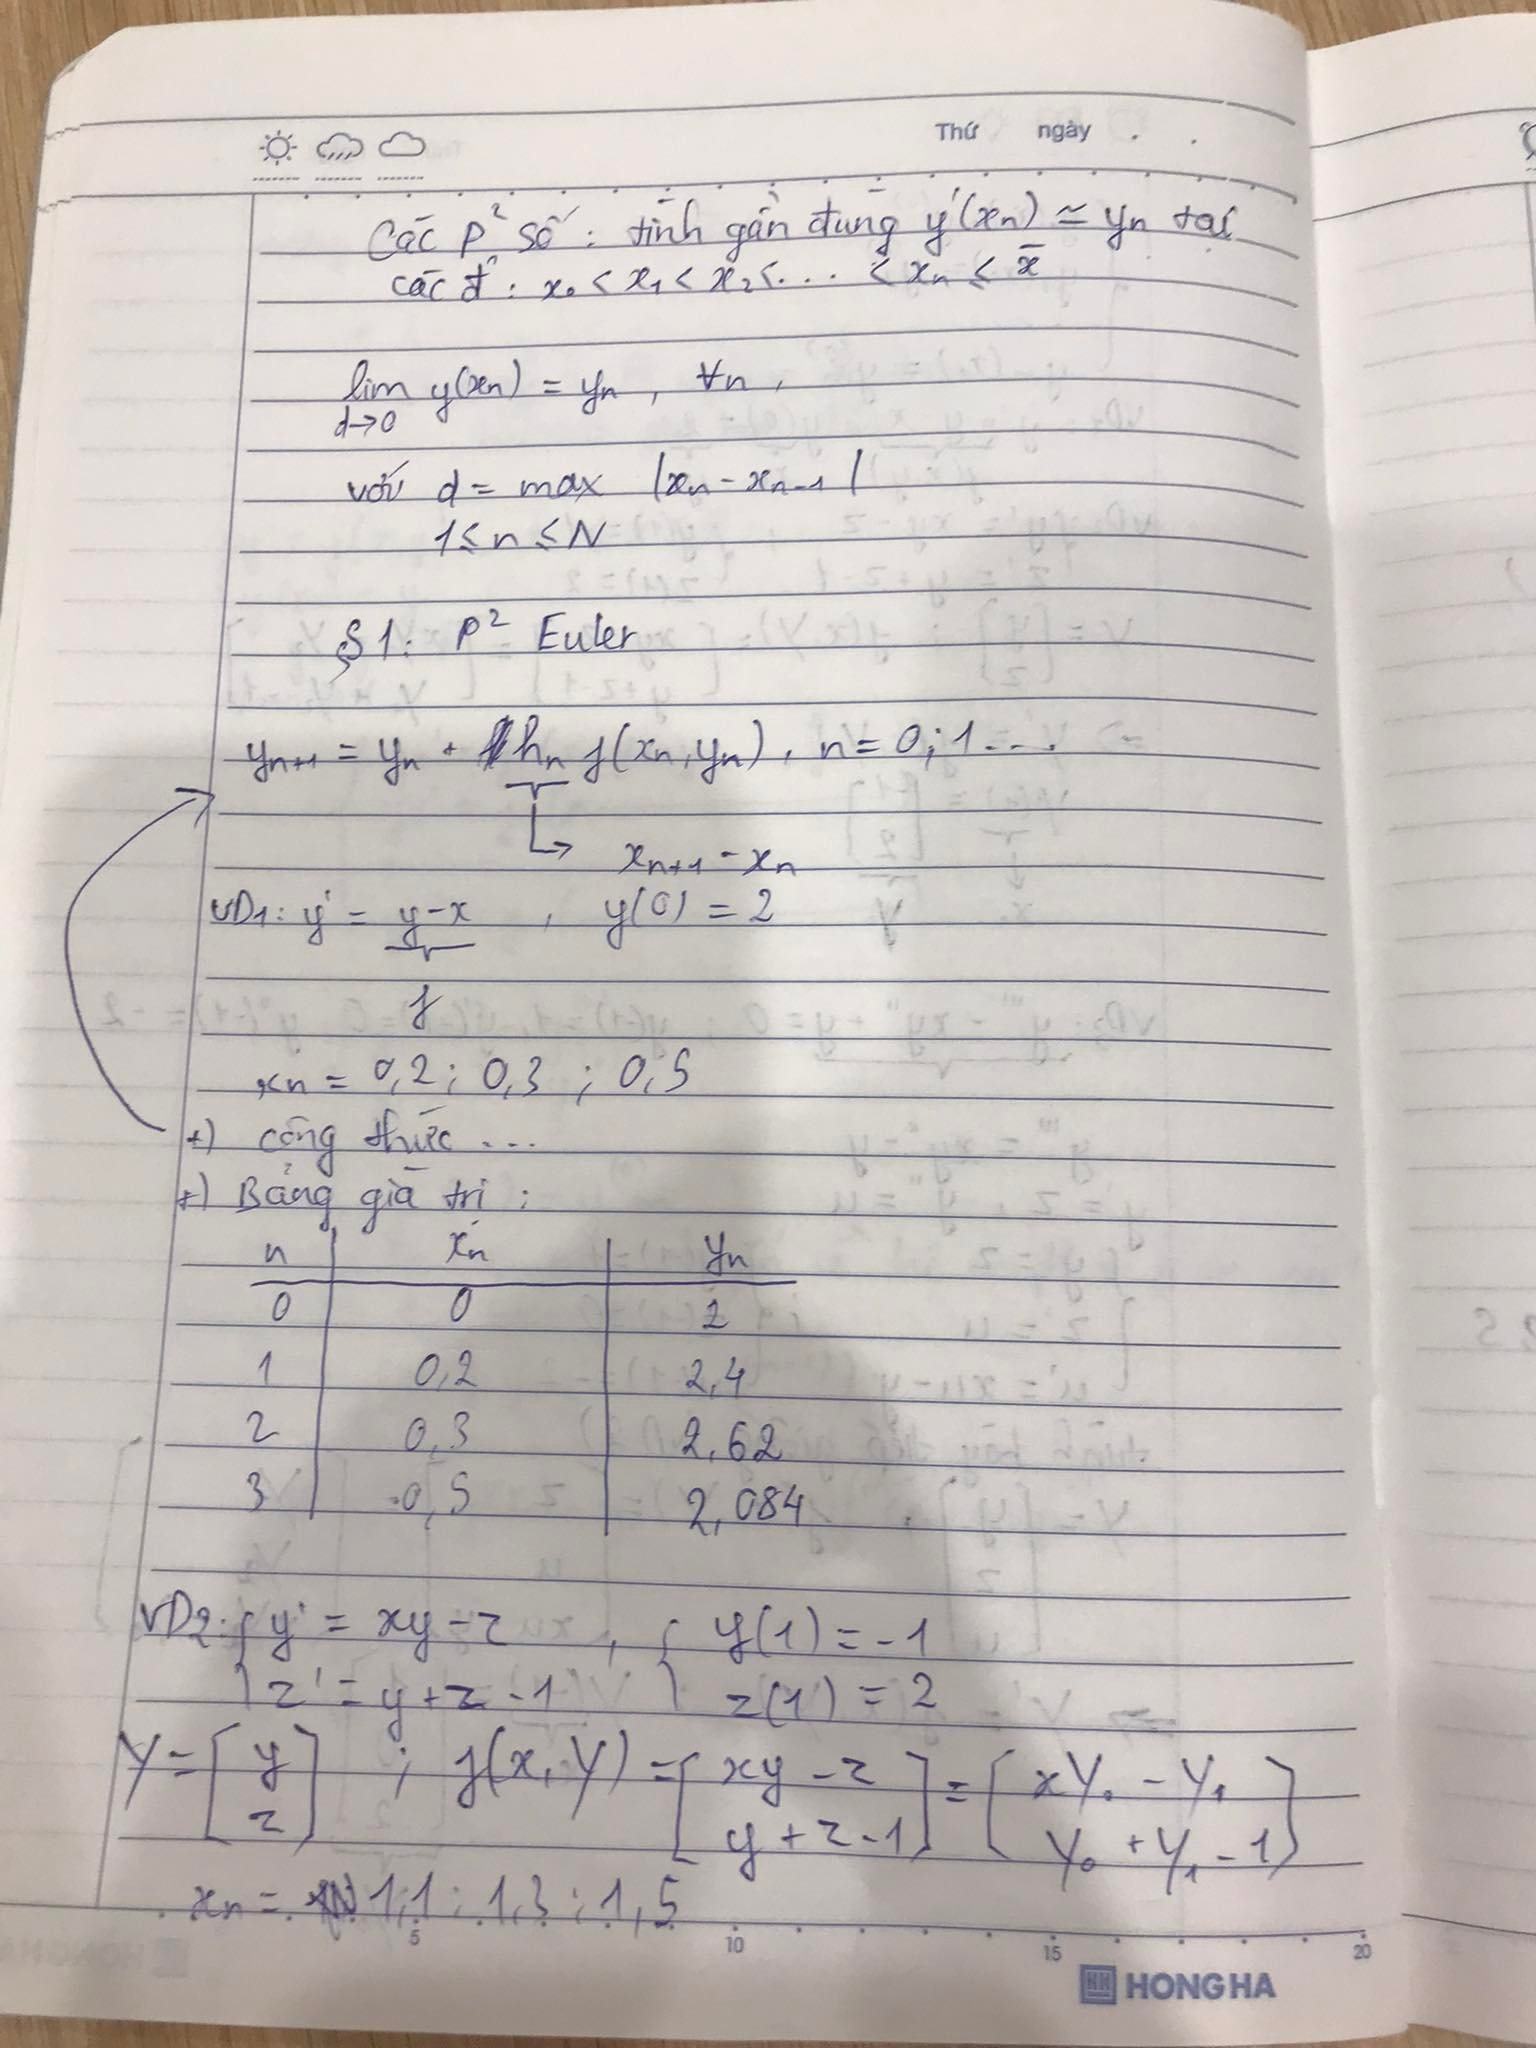 Thứ ngày . .
Các p² số : tính gần đúng y'(xₙ) ≃ yₙ tại
các đ² : x₀ < x₁ < x₂ < ... < xₙ ≤ x̄
lim y(xₙ) = yₙ , ∀n ,
d→0
với d = max |xₙ - xₙ₋₁|
1 ≤ n ≤ N
§1: P² Euler
yₙ₊₁ = yₙ + hₙ f(xₙ, yₙ) , n = 0; 1 ...
xₙ₊₁ - xₙ
VD1: y' = y-x , y(0) = 2
f
xₙ = 0,2 ; 0,3 ; 0,5
+) công thức ...
+) Bảng giá trị :
n xₙ yₙ
0 0 2
1 0,2 2,4
2 0,3 2,62
3 0,5 2,084
VD2: { y' = xy - z , { y(1) = -1
z' = y + z - 1 z(1) = 2
Y = [ y ; f(x, Y) = [ xy - z ] = [ xY₀ - Y₁
z ] y + z - 1 ] Y₀ + Y₁ - 1 ]
xₙ = 1,1 ; 1,3 ; 1,5
5 10 15 20
HH HONG HA